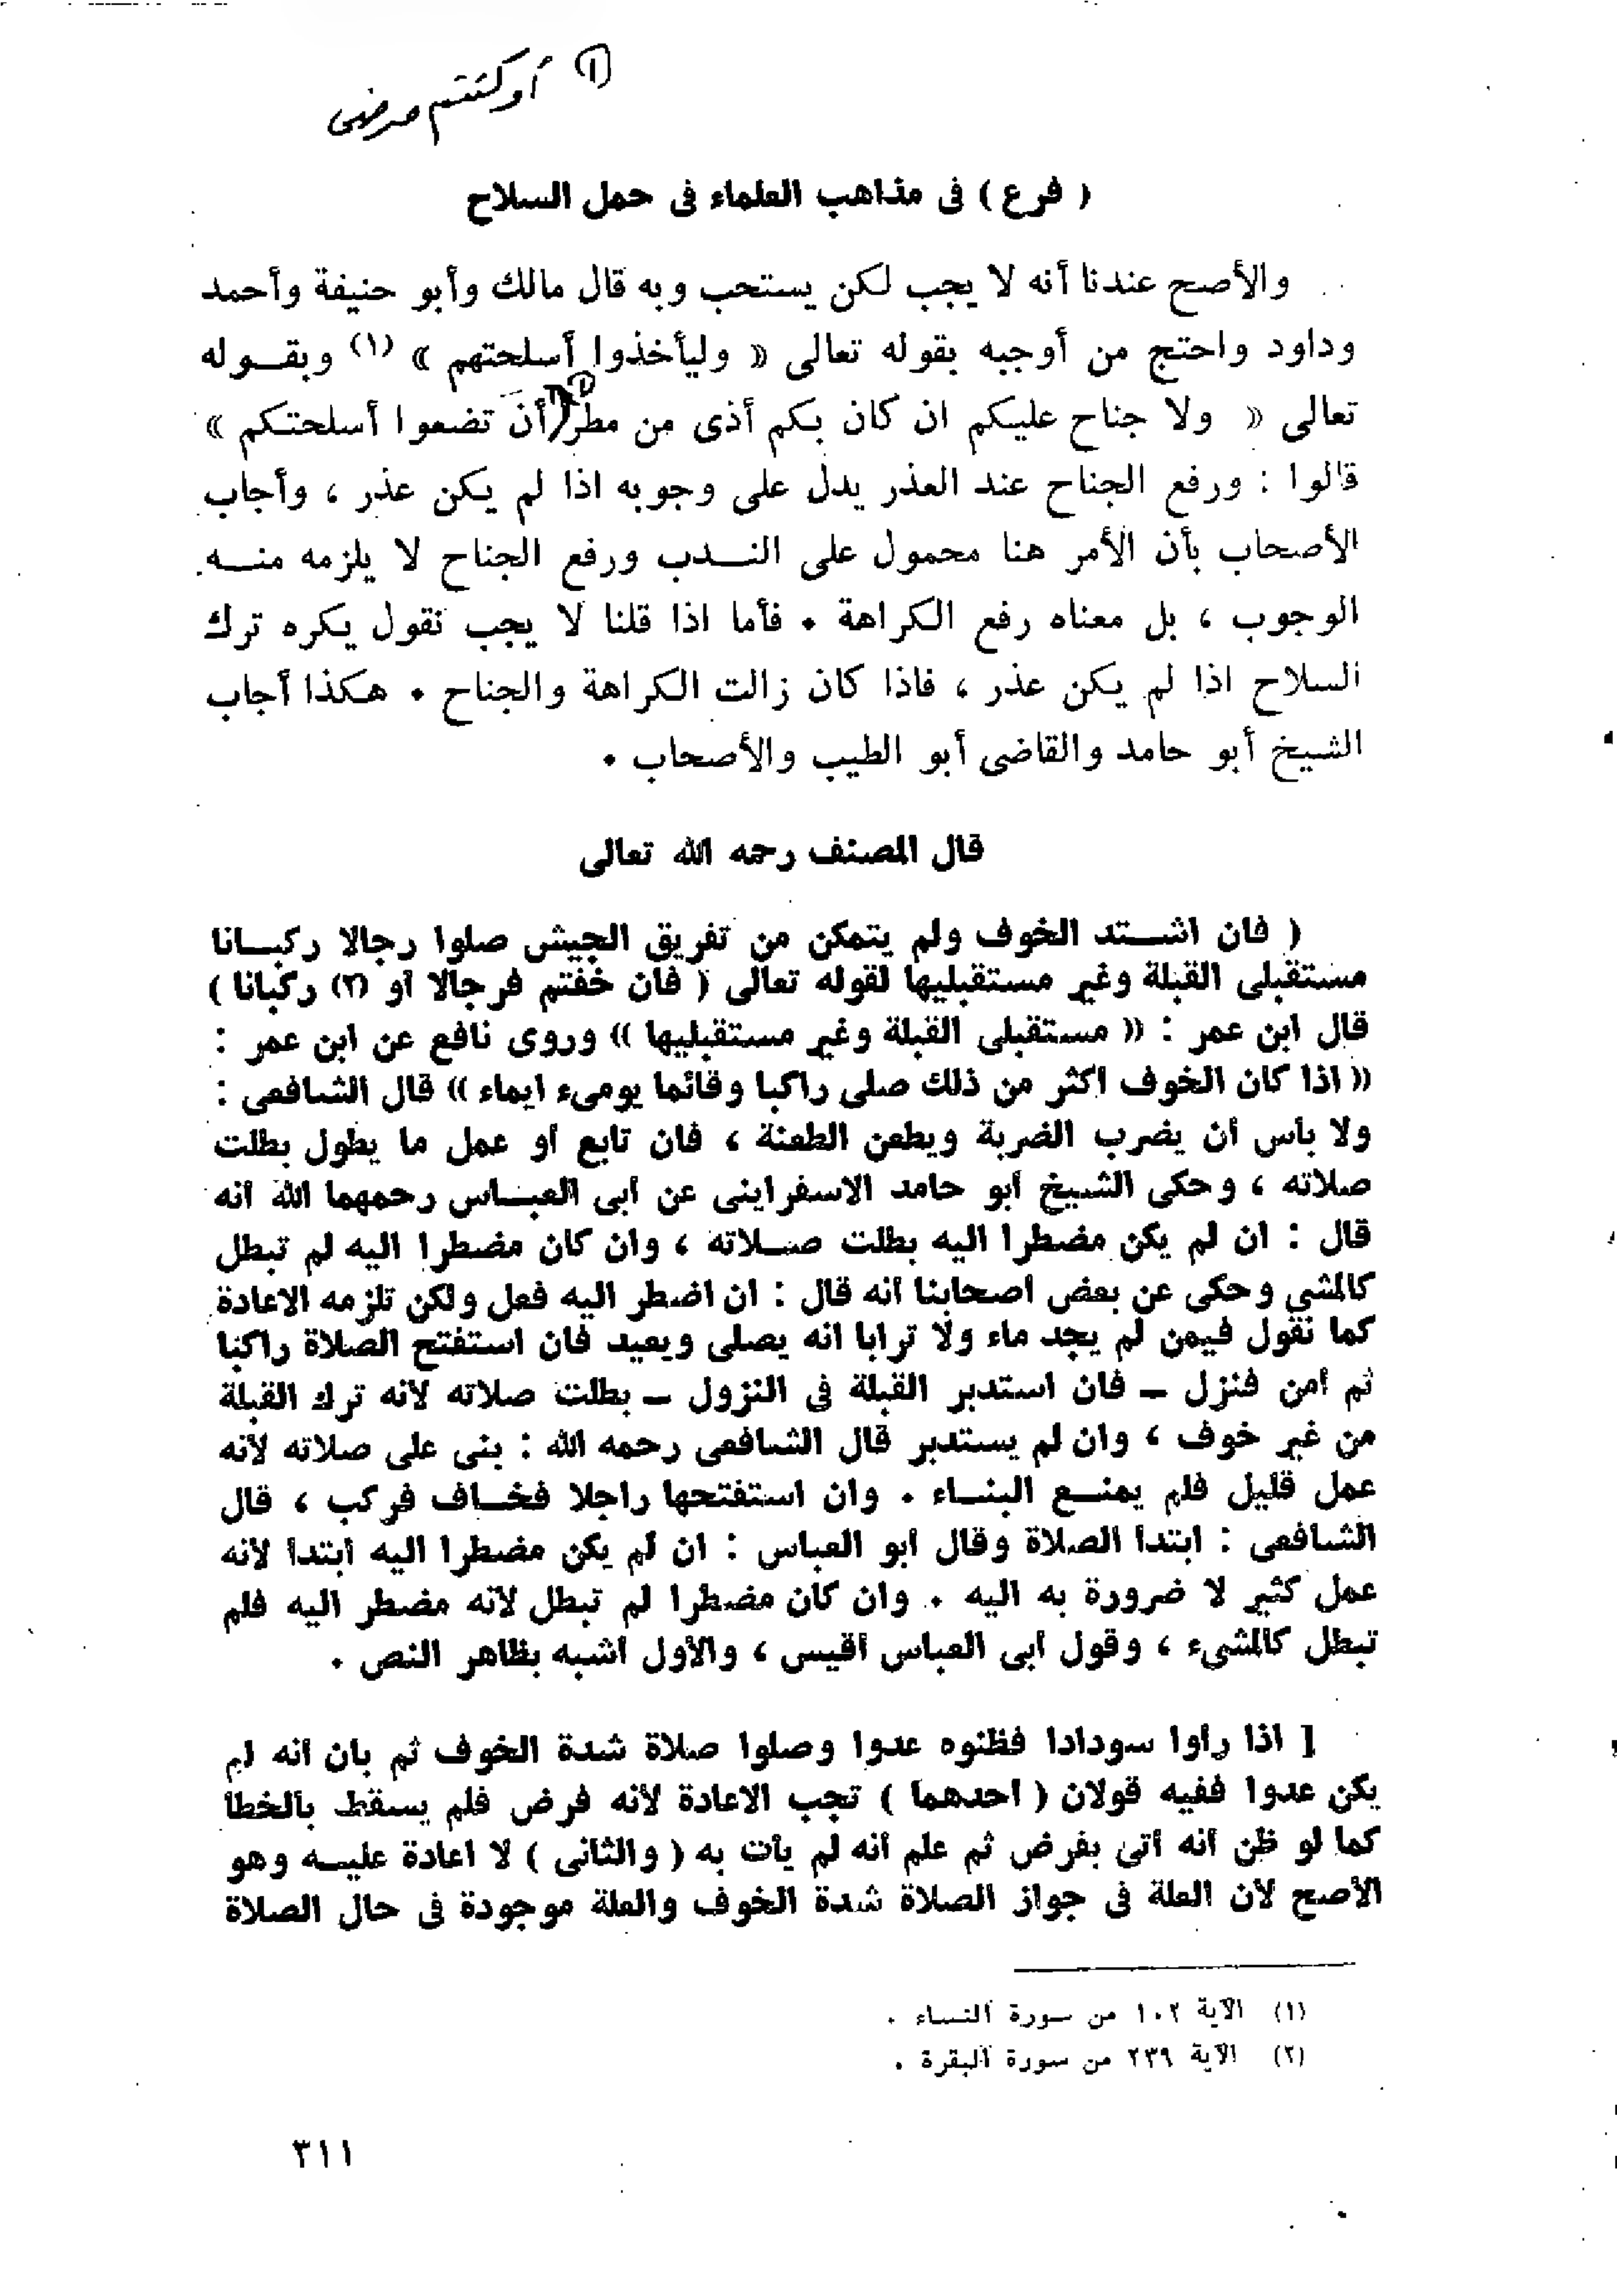 (١) أو كنتم مرضى
( فرع ) فى مذاهب العلماء فى حمل السلاح
والأصح عندنا أنه لا يجب لكن يستحب وبه قال مالك وأبو حنيفة وأحمد
وداود واحتج من أوجبه بقوله تعالى « وليأخذوا أسلحتهم » (١) وبقـــوله
تعالى « ولا جناح عليكم ان كان بكم أذى من مطر (١) أن تضعوا أسلحتكم »
قالوا : ورفع الجناح عند العذر يدل على وجوبه اذا لم يكن عذر ، وأجاب
الأصحاب بأن الأمر هنا محمول على النـــدب ورفع الجناح لا يلزمه منـــه
الوجوب ، بل معناه رفع الكراهة • فأما اذا قلنا لا يجب نقول يكره ترك
السلاح اذا لم يكن عذر ، فاذا كان زالت الكراهة والجناح • هكذا أجاب
الشيخ أبو حامد والقاضى أبو الطيب والأصحاب •
قال المصنف رحمه الله تعالى
( فان اشـــتد الخوف ولم يتمكن من تفريق الجيش صلوا رجالا ركبـــانا
مستقبلى القبلة وغير مستقبليها لقوله تعالى ( فان خفتم فرجالا أو (٢) ركبانا )
قال ابن عمر : « مستقبلى القبلة وغير مستقبليها » وروى نافع عن ابن عمر :
« اذا كان الخوف اكثر من ذلك صلى راكبا وقائما يومىء ايماء » قال الشافعى :
ولا باس أن يضرب الضربة ويطعن الطعنة ، فان تابع أو عمل ما يطول بطلت
صلاته ، وحكى الشيخ أبو حامد الاسفراينى عن أبى العبـــاس رحمهما الله أنه
قال : ان لم يكن مضطرا اليه بطلت صـــلاته ، وان كان مضطرا اليه لم تبطل
كالمشي وحكى عن بعض اصحابنا أنه قال : ان اضطر اليه فعل ولكن تلزمه الاعادة
كما نقول فيمن لم يجد ماء ولا ترابا انه يصلى ويعيد فان استفتح الصلاة راكبا
ثم أمن فنزل ــ فان استدبر القبلة فى النزول ــ بطلت صلاته لأنه ترك القبلة
من غير خوف ، وان لم يستدبر قال الشافعى رحمه الله : بنى على صلاته لأنه
عمل قليل فلم يمنـــع البنـــاء • وان استفتحها راجلا فخـــاف فركب ، قال
الشافعى : ابتدا الصلاة وقال أبو العباس : ان لم يكن مضطرا اليه ابتدا لأنه
عمل كثير لا ضرورة به اليه • وان كان مضطرا لم تبطل لأنه مضطر اليه فلم
تبطل كالمشىء ، وقول أبى العباس أقيس ، والأول اشبه بظاهر النص •
[ اذا رأوا سودادا فظنوه عدوا وصلوا صلاة شدة الخوف ثم بان أنه لم
يكن عدوا ففيه قولان ( احدهما ) تجب الاعادة لأنه فرض فلم يسقط بالخطا
كما لو ظن أنه أتى بفرض ثم علم أنه لم يأت به ( والثانى ) لا اعادة عليـــه وهو
الأصح لأن العلة فى جواز الصلاة شدة الخوف والعلة موجودة فى حال الصلاة
(١) الآية ١٠٢ من سورة النساء •
(٢) الآية ٢٣٩ من سورة البقرة •
٣١١